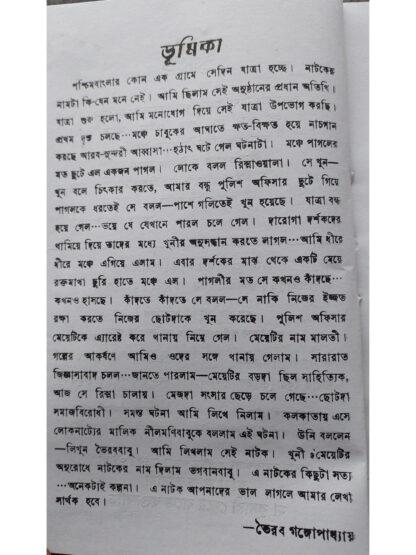 ভূমিকা
পশ্চিমবাংলার কোন এক গ্রামে সেদিন যাত্রা হচ্ছে। নাটকের
নামটা কি-যেন মনে নেই। আমি ছিলাম সেই অনুষ্ঠানের প্রধান অতিথি।
যাত্রা শুরু হলো, আমি মনোযোগ দিয়ে সেই যাত্রা উপভোগ করছি।
প্রথম দৃশ্য চলছে···মঞ্চে চাবুকের আঘাতে ক্ষত-বিক্ষত হয়ে নাচগান
করছে আরব-সুন্দরী আব্বাসা···হঠাৎ ঘটে গেল ঘটনাটা। মঞ্চে পাগলের
মত ছুটে এল একজন পাগল। লোকে বলল রিক্সাওয়ালা। সে খুন—
খুন বলে চিৎকার করতে, আমার বন্ধু পুলিশ অফিসার ছুটে গিয়ে
পাগলকে ধরতেই সে বলল—পাশে গলিতেই খুন হয়েছে। যাত্রা বন্ধ
হয়ে গেল···ভয়ে যে যেখানে পারল চলে গেল। দারোগা দর্শকদের
থামিয়ে দিয়ে তাদের মধ্যে খুনীর অনুসন্ধান করতে লাগল···আমি ধীরে
ধীরে মঞ্চে এগিয়ে এলাম। এবার দর্শকের মাঝ থেকে একটি মেয়ে
রক্তমাখা ছুরি হাতে মঞ্চে এল। পাগলীর মত সে কখনও কাঁদছে···
কখনও হাসছে। কাঁদতে কাঁদতে সে বলল—সে নাকি নিজের ইজ্জত
রক্ষা করতে নিজের ছোটদাকে খুন করেছে। পুলিশ অফিসার
মেয়েটিকে এ্যারেষ্ট করে থানায় নিয়ে গেল। মেয়েটির নাম মালতী।
গল্পের আকর্ষণে আমিও ওদের সঙ্গে থানায় গেলাম। সারারাত
জিজ্ঞাসাবাদ চলল···জানতে পারলাম—মেয়েটির বড়দা ছিল সাহিত্যিক,
আজ সে রিক্সা চালায়। মেজদা সংসার ছেড়ে চলে গেছে···ছোটদা
সমাজবিরোধী। সমস্ত ঘটনা আমি লিখে নিলাম। কলকাতায় এসে
লোকনাট্যের মালিক নীলমণিবাবুকে বললাম এই ঘটনা। উনি বললেন
—লিখুন ভৈরববাবু। আমি লিখলাম সেই নাটক। খুনী মেয়েটির
অনুরোধে নাটকের নাম দিলাম ভগবানবাবু। এ নাটকের কিছুটা সত্য
···অনেকটাই কল্পনা। এ নাটক আপনাদের ভাল লাগলে আমার লেখা
সার্থক হবে।
—ভৈরব গঙ্গোপাধ্যায়